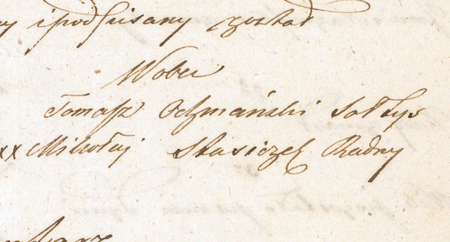 y i podpisany został
Wobec
Tomasz Ochmański Sołtys
xx Mikołaj Stasiczek Radny